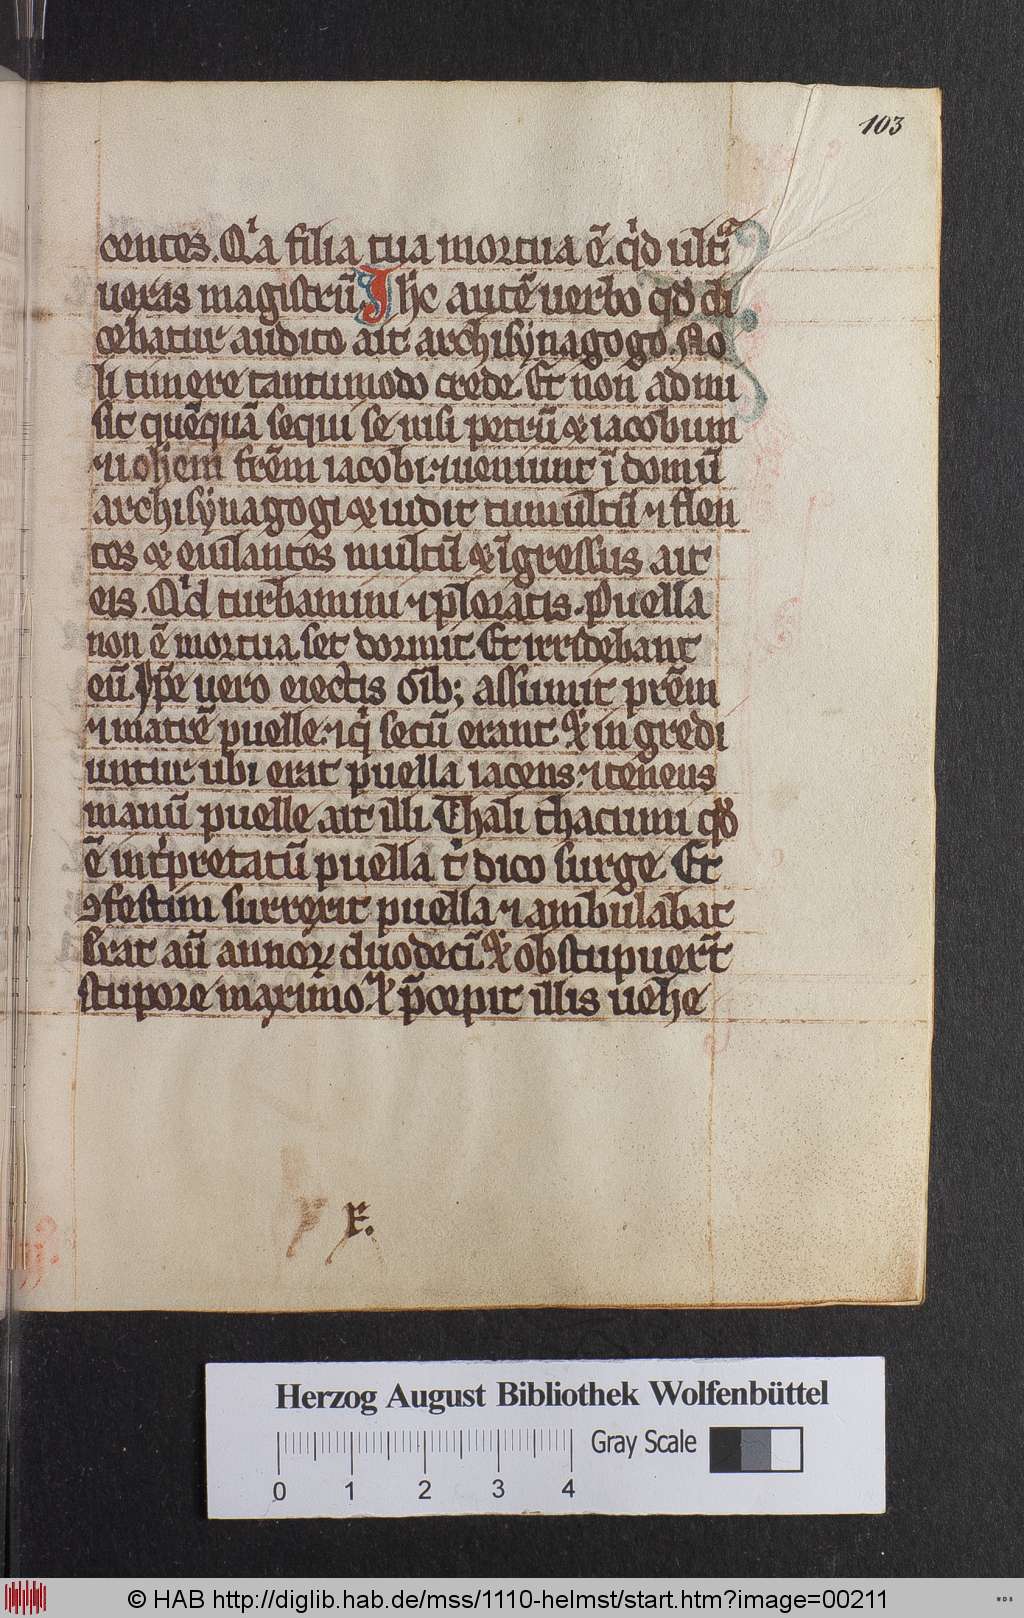 103
centes. Qͥa filia tua mortua ē. qͥd ultͣ
ueras magistrū. Ihc autē uerbo qd di
cebatur audito ait archisynagogo. No
li timere tantummodo crede. Et non admi
sit quēquā sequi se nisi petrū ⁊ iacobum
⁊ iohem frēm iacobi. ⁊ ueniunt ī domū
archisynagogi ⁊ uidit tumultū ⁊ flen
tes ⁊ eiulantes multū ⁊ īgressus ait
eis. Qͥd turbamini ⁊ ploratis. Puella
non ē mortua set dormit. Et irridebant
eū. Ip̄e uero eiectis oīb; assumit prēm
⁊ matrē puelle. ⁊ qͥ secū erant. ⁊ ingredi
untur ubi erat puella iacens. ⁊ tenens
manū puelle ait illi. Thali thacumi qd
ē int̓pretatū puella tͥ dico surge. Et
ꝯfestim surrexit puella ⁊ ambulabat
Erat aū annoꝝ duodecī. ⁊ obstupuerͭ
stupore maximo. ⁊ p̄cepit illis uehe
F.
Herzog August Bibliothek Wolfenbüttel
Gray Scale
0 1 2 3 4
© HAB http://diglib.hab.de/mss/1110-helmst/start.htm?image=00211